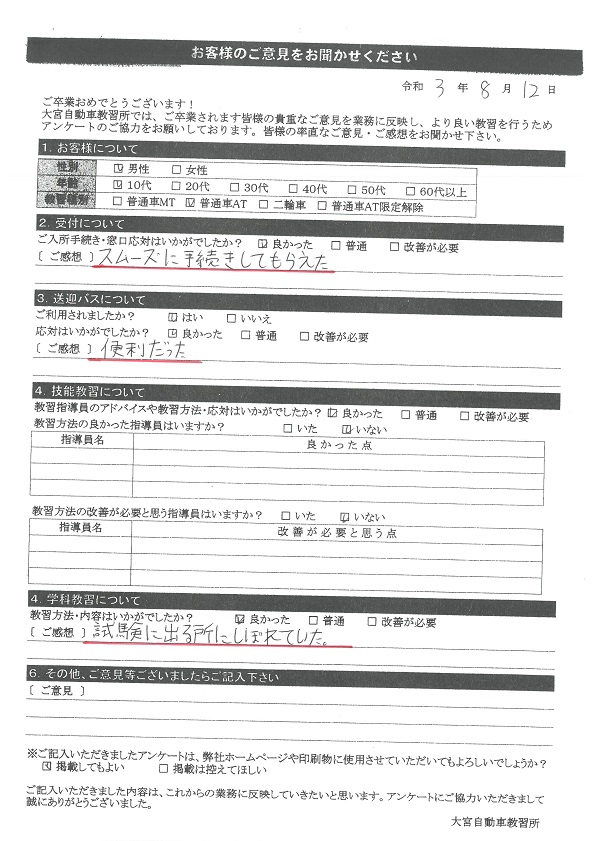 お客様のご意見をお聞かせください
令和 3 年 8 月 12 日
ご卒業おめでとうございます!
大宮自動車教習所では、ご卒業されます皆様の貴重なご意見を業務に反映し、より良い教習を行うため
アンケートのご協力をお願いしております。皆様の率直なご意見・ご感想をお聞かせ下さい。
1. お客様について
性別 ☑ 男性 □ 女性
年齢 ☑ 10代 □ 20代 □ 30代 □ 40代 □ 50代 □ 60代以上
教習種別 □ 普通車MT ☑ 普通車AT □ 二輪車 □ 普通車AT限定解除
2. 受付について
ご入所手続き・窓口応対はいかがでしたか? ☑ 良かった □ 普通 □ 改善が必要
〔 ご感想 〕 スムーズに手続きしてもらえた
3. 送迎バスについて
ご利用されましたか? ☑ はい □ いいえ
応対はいかがでしたか? ☑ 良かった □ 普通 □ 改善が必要
〔 ご感想 〕 便利だった
4. 技能教習について
教習指導員のアドバイスや教習方法・応対はいかがでしたか? ☑ 良かった □ 普通 □ 改善が必要
教習方法の良かった指導員はいますか? □ いた ☑ いない
指導員名 良かった点
教習方法の改善が必要と思う指導員はいますか? □ いた ☑ いない
指導員名 改善が必要と思う点
4. 学科教習について
教習方法・内容はいかがでしたか? ☑ 良かった □ 普通 □ 改善が必要
〔 ご感想 〕 試験に出る所にしぼれていた。
6. その他、ご意見等ございましたらご記入下さい
〔 ご意見 〕
※ご記入いただきましたアンケートは、弊社ホームページや印刷物に使用させていただいてもよろしいでしょうか?
☑ 掲載してもよい □ 掲載は控えてほしい
ご記入いただきました内容は、これからの業務に反映していきたいと思います。アンケートにご協力いただきまして
誠にありがとうございました。
大宮自動車教習所